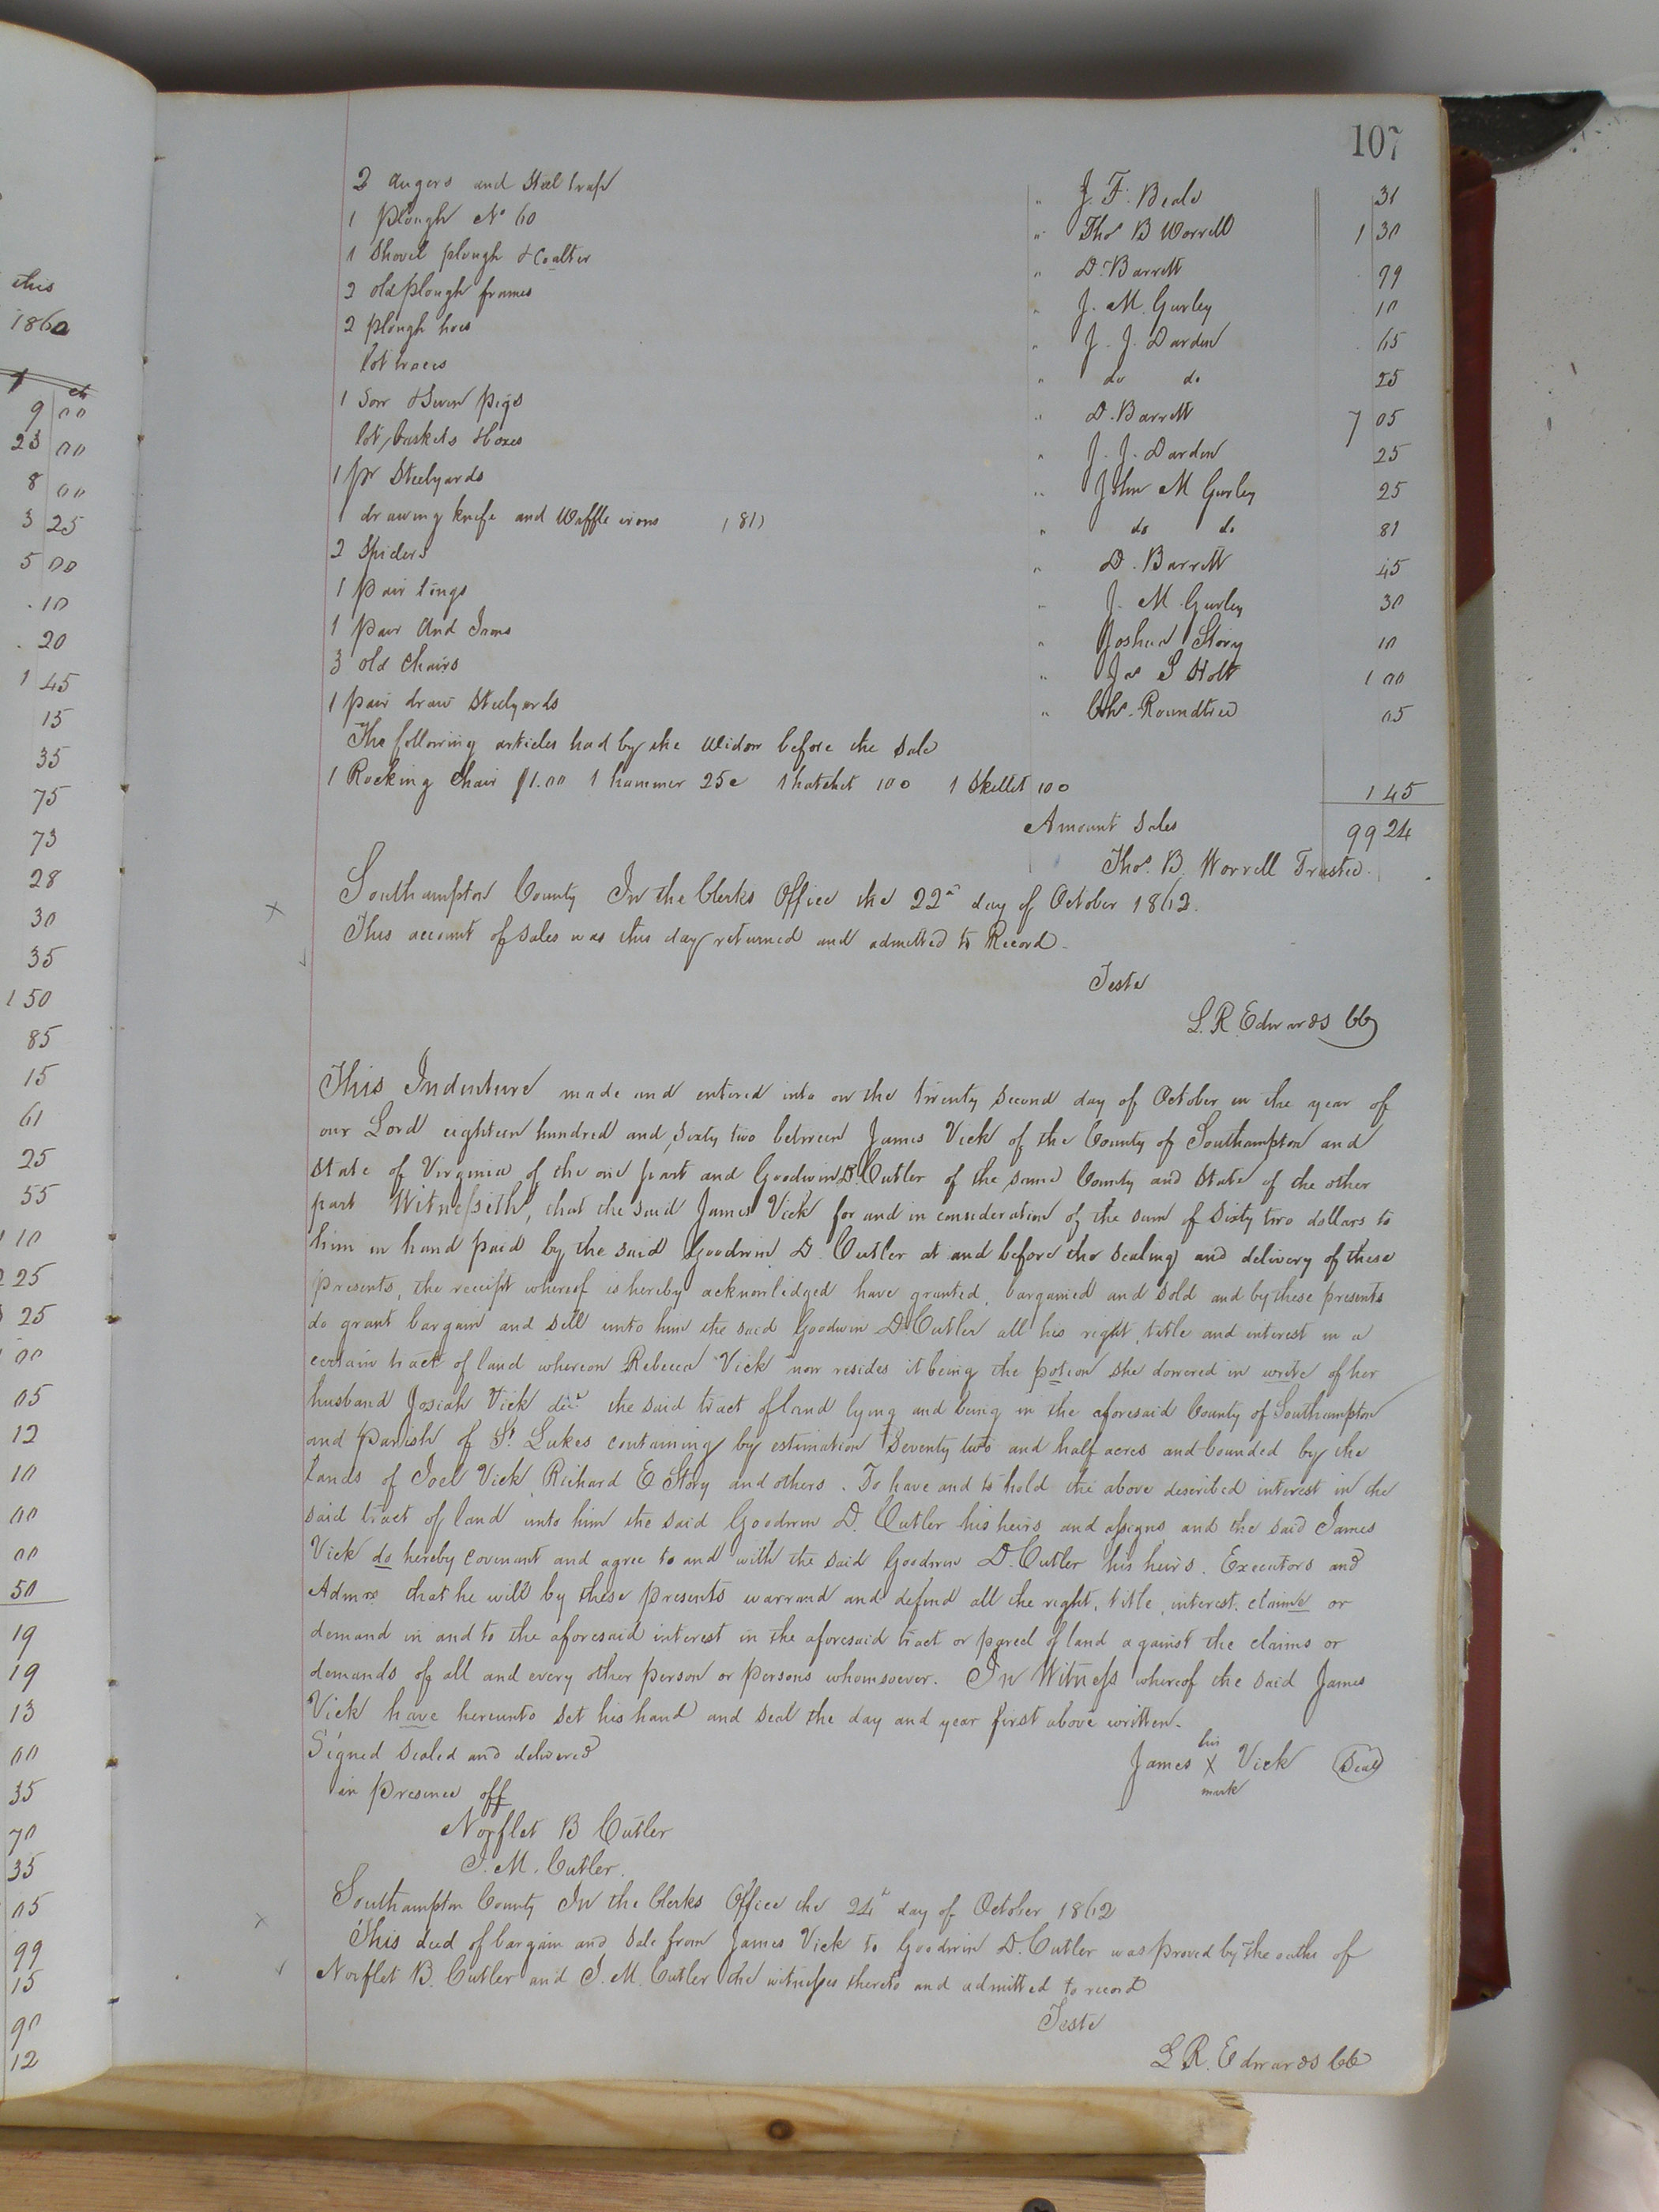 this
1860
cts
9 00
23 00
8 00
3 25
5 00
.10
.20
1 45
15
35
75
73
28
30
35
1 50
85
15
61
25
55
1 10
25
25
00
05
12
10
00
00
50
19
19
13
00
35
70
35
05
99
15
90
12
107
2 Augers and Steel trap " J. F. Beale 31
1 Plough No 60 " Thos B Worrell 1 30
1 Shovel plough & Coalter " D. Barrett 99
2 old plough frames " J. M. Gurley 10
2 plough hoes " J. J. Darden 65
lot traces " do do 25
1 Sow & Seven Pigs " D. Barrett 7 05
lot baskets & boxes " J. J. Darden 25
1 pr Steelyards " John M Gurley 25
drawing knife and Waffle irons (81) " do do 81
2 Spiders " D. Barrett 45
1 Pair tongs " J. M. Gurley 30
1 pair And Irons " Joshua Story 10
3 old Chairs " Jas S Holt 1 00
1 pair draw Steelyards " Roundtree 05
The following articles had by the Widow before the Sale
1 Rocking Chair $1.00 1 hammer 25c 1 hatchet 10c 1 Skillet 10c 1 45
Amount Sales 99 24
Thos. B. Worrell Trustee.
Southampton County In the Clerks Office the 22d day of October 1862.
This account of Sales was this day returned and admitted to Record.
Teste
L. R. Edwards CC
This Indenture made and entered into on the twenty Second day of October in the year of
our Lord eighteen hundred and sixty two between James Vick of the County of Southampton and
State of Virginia of the one part and Goodwin D. Cutler of the same County and State of the other
part Witnesseth, that the said James Vick for and in consideration of the sum of Sixty two dollars to
him in hand paid by the said Goodwin D. Cutler at and before the sealing and delivery of these
presents, the receipt whereof is hereby acknowledged have granted, bargained and Sold and by these presents
do grant bargain and sell unto him the said Goodwin D. Cutler all his right, title and interest in a
certain tract of land whereon Rebecca Vick now resides it being the potion she dowered in write of her
husband Josiah Vick decd the said tract of land lying and being in the aforesaid County of Southampton
and Parish of St. Lukes containing by estimation Seventy two and half acres and bounded by the
lands of Joel Vick Richard E Story and others. To have and to hold the above described interest in the
said tract of land unto him the said Goodwin D. Cutler his heirs and assigns and the said James
Vick do hereby covenant and agree to and with the said Goodwin D. Cutler his heirs. Executors and
Admrs that he will by these presents warrand and defend all the right, title, interest, claime or
demand in and to the aforesaid interest in the aforesaid tract or parcel of land against the claims or
demands of all and every other person or persons whomsoever. In Witness whereof the said James
Vick have hereunto set his hand and seal the day and year first above written.
Signed Sealed and delivered
his
James X Vick Seal
mark
in presence off
Norflet B Cutler
J. M. Cutler.
Southampton County In the Clerks Office the 24th day of October 1862
This deed of bargain and Sale from James Vick to Goodwin D. Cutler was proved by the oaths of
Norflet B. Cutler and J. M. Cutler the witnesses thereto and admitted to record
Teste
L. R. Edwards CC